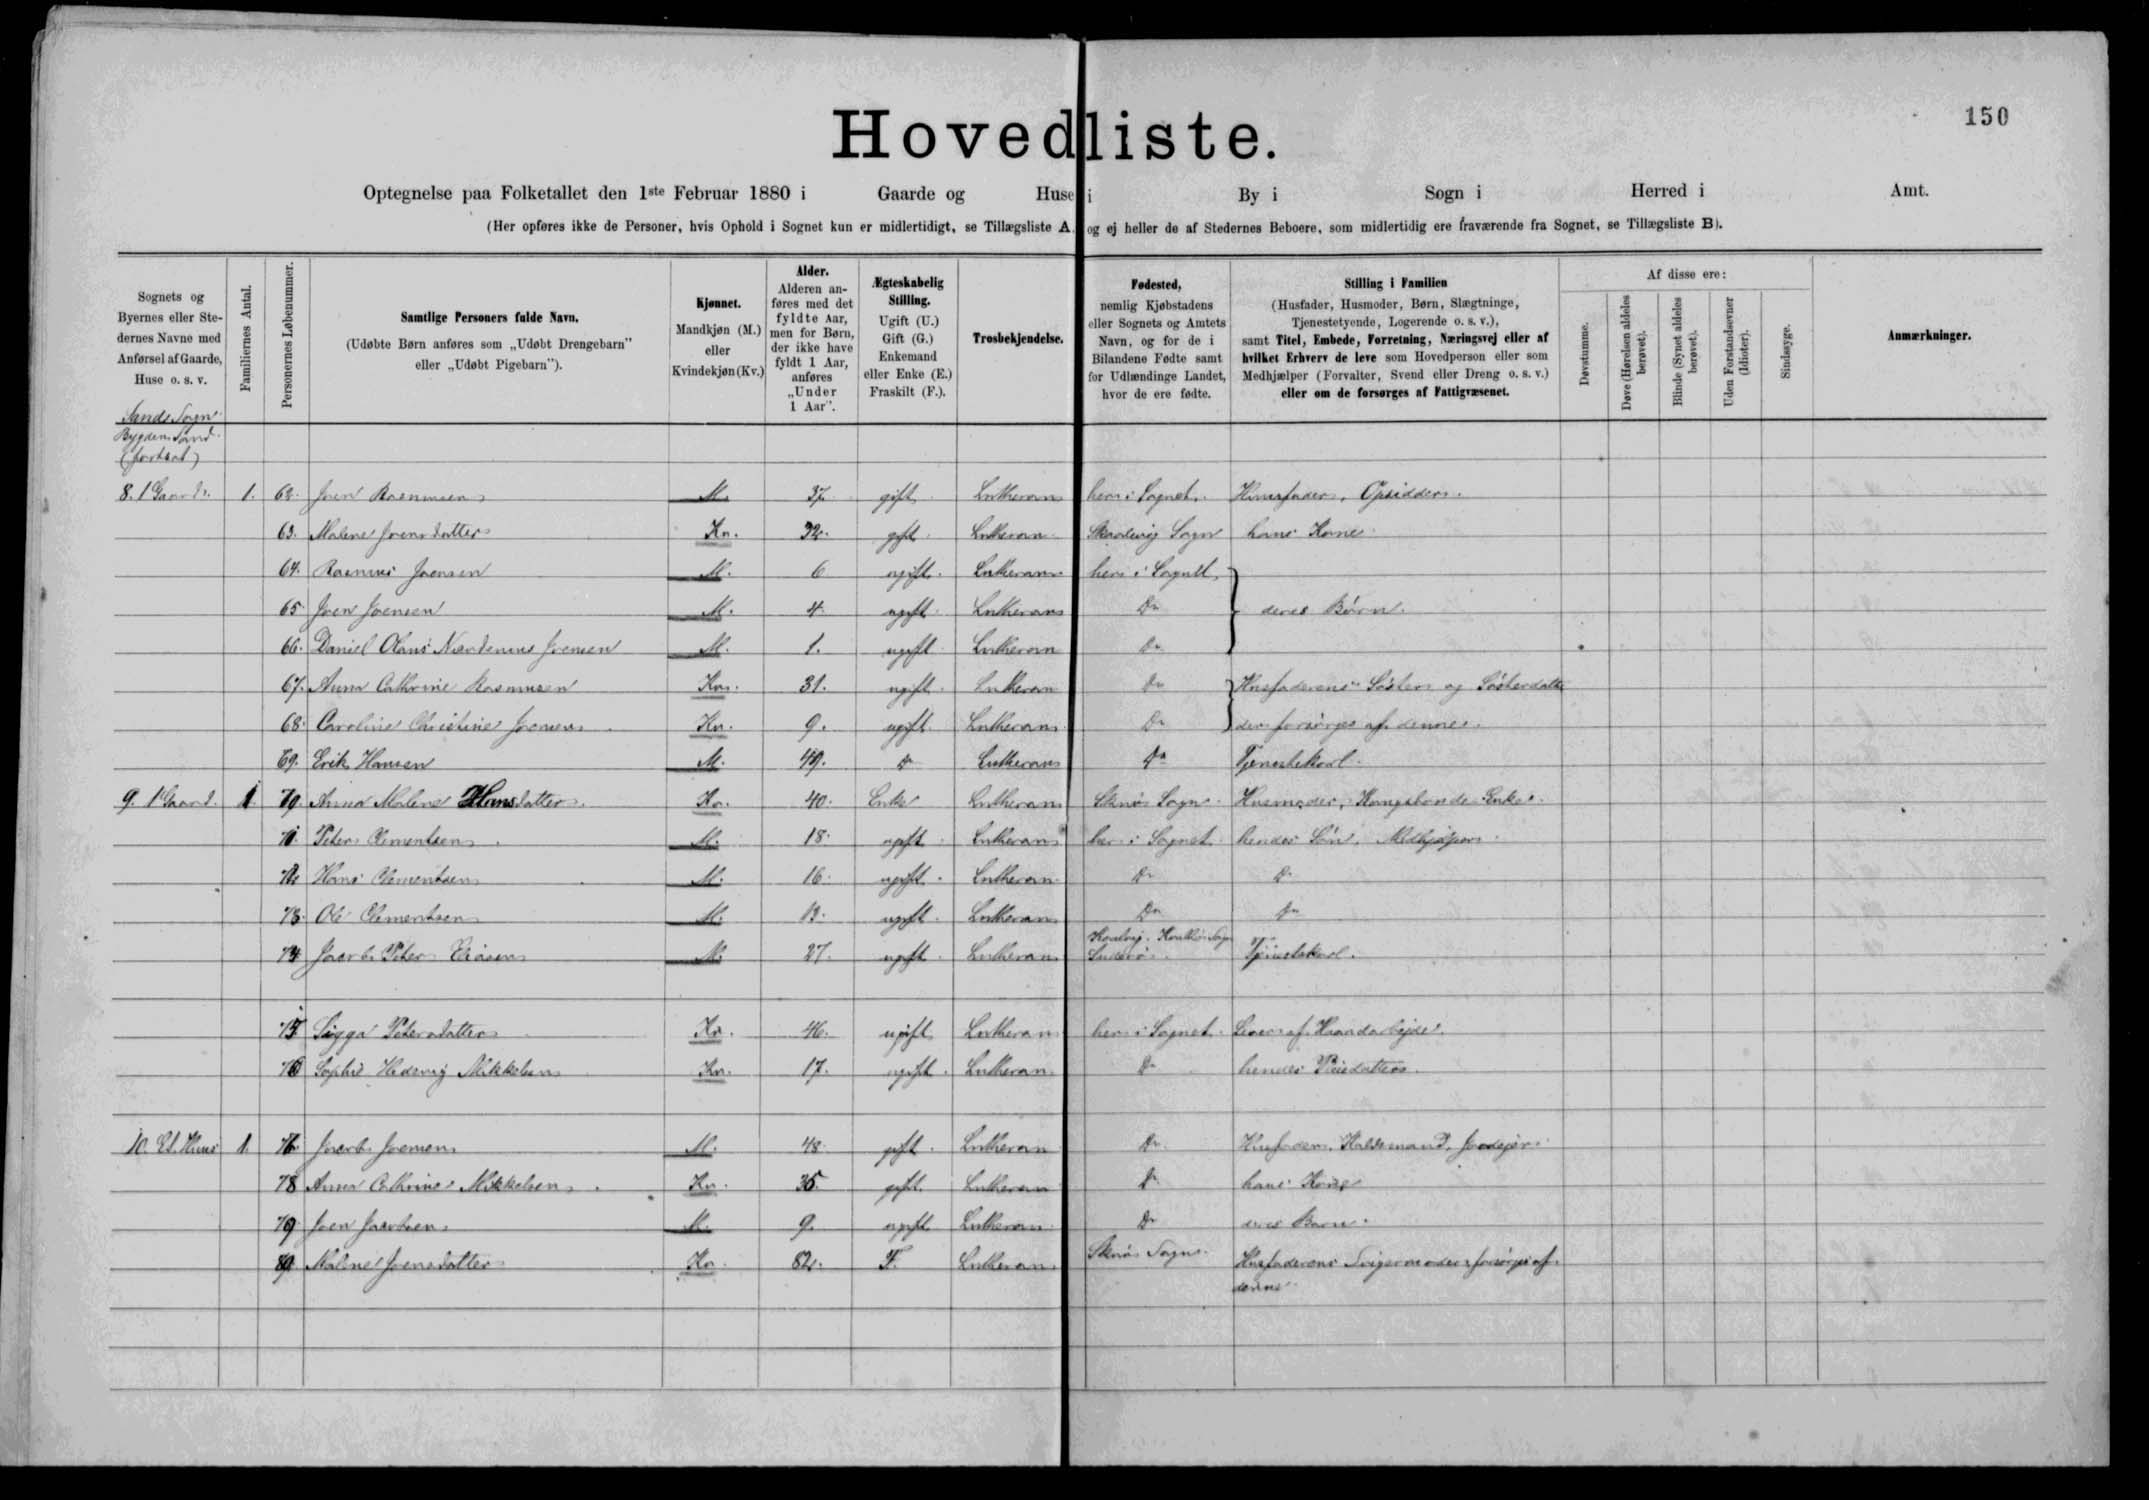 150
Hovedliste.
Optegnelse paa Folketallet den 1ste Februar 1880 i Gaarde og Huse i By i Sogn i Herred i Amt.
(Her opføres ikke de Personer, hvis Ophold i Sognet kun er midlertidigt, se Tillægsliste A, og ej heller de af Stedernes Beboere, som midlertidig ere fraværende fra Sognet, se Tillægsliste B).
Sognets og Byernes eller Stedernes Navne med Anførsel af Gaarde, Huse o. s. v.
Familiernes Antal.
Personernes Løbenummer.
Samtlige Personers fulde Navn.
(Udøbte Børn anføres som „Udøbt Drengebarn” eller „Udøbt Pigebarn”).
Kjønnet.
Mandkjøn (M.) eller Kvindekjøn (Kv.)
Alder.
Alderen anføres med det fyldte Aar, men for Børn, der ikke have fyldt 1 Aar, anføres „Under 1 Aar”.
Ægteskabelig Stilling.
Ugift (U.) Gift (G.) Enkemand eller Enke (E.) Fraskilt (F.).
Trosbekjendelse.
Fødested,
nemlig Kjøbstadens eller Sognets og Amtets Navn, og for de i Bilandene Fødte samt for Udlændinge Landet, hvor de ere fødte.
Stilling i Familien
(Husfader, Husmoder, Børn, Slægtninge, Tjenestetyende, Logerende o. s. v.),
samt Titel, Embede, Forretning, Næringsvej eller af hvilket Erhverv de leve som Hovedperson eller som Medhjælper (Forvalter, Svend eller Dreng o. s. v.) eller om de forsørges af Fattigvæsenet.
Af disse ere:
Døvstumme.
Døve (Hørelsen aldeles berøvet).
Blinde (Synet aldeles berøvet).
Uden Forstandsevner (Idioter).
Sindssyge.
Anmærkninger.
Sands Sogn
Bygden Sand
(fortsat)
8. 1 Gaard. 1. 62. Joen Rasmussen M. 37. gift Lutheran her i Sognet. Huusfader, Opsidder.
63. Malene Joensdatter Kv. 32. gift Lutheran Skaalevig Sogn hans Kone
64. Rasmus Joensen M. 6 ugift. Lutheran her i Sognet
65. Joen Joensen M. 4. ugift. Lutheran Do deres Børn.
66. Daniel Olaus Joensen M. 1. ugift Lutheran Do
67. Anna Cathrine Rasmussen Kv. 31. ugift. Lutheran Do Husfaderens Søster og Søsterdatter
68. Caroline Christine Joensen Kv. 9. ugift. Lutheran Do der forsørges af denne.
69. Erik Hansen M. 49. Do Lutheran Do Tjenestekarl.
9. 1 Gaard. 1. 70. Anna Malene Hansdatter. Kv. 40. Enke Lutheran Skuø Sogn. Husmoder, Kongsbonde Enke.
71. Peter Clementsen M. 18. ugift. Lutheran her i Sognet hendes Søn, Medhjælper
72. Hans Clementsen M. 16. ugift. Lutheran Do Do
73. Ole Clementsen M. 13. ugift. Lutheran Do Do
74. Jacob Peter M. 27. ugift. Lutheran Hvalbø Sogn Suderø. Tjenestekarl.
75. Sigga Petersdatter Kv. 46. ugift Lutheran her i Sognet. Lever af Haandarbejde.
76. Sophie Hedevig Mikkelsen Kv. 17. ugift. Lutheran Do hendes Pleiedatter.
10. Et Huus 1. Jacob Joensen M. 48. gift. Lutheran Do Husfader, Jordejer.
78 Anna Cathrine Mikkelsen Kv. 35. gift. Lutheran Do hans Kone
79. Joen Jacobsen M. 9. ugift Lutheran Do deres Barn.
80. Malene Joensdatter Kv. 82. F. Lutheran Skuø Sogn. Husfaderens Svigermoder, forsørges af
denne